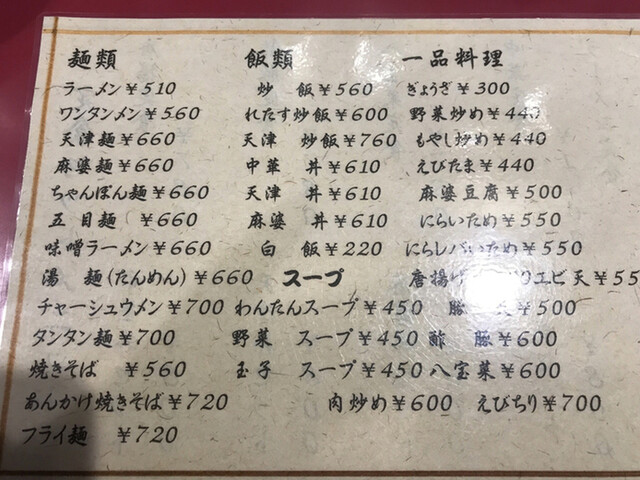 麺類 飯類 一品料理
ラーメン￥510 炒飯￥560 ぎょうざ￥300
ワンタンメン￥560 れたす炒飯￥600 野菜炒め￥440
天津麺￥660 天津炒飯￥760 もやし炒め￥440
麻婆麺￥660 中華丼￥610 えびたま￥440
ちゃんぽん麺￥660 天津丼￥610 麻婆豆腐￥500
五目麺￥660 麻婆丼￥610 にらいため￥550
味噌ラーメン￥660 白飯￥220 にらレバいため￥550
湯麺(たんめん)￥660 スープ 唐揚げ エビ天￥55
チャーシュウメン￥700 わんたんスープ￥450 豚 ￥500
タンタン麺￥700 野菜スープ￥450 酢豚￥600
焼きそば￥560 玉子スープ￥450 八宝菜￥600
あんかけ焼きそば￥720 肉炒め￥600 えびちり￥700
フライ麺￥720